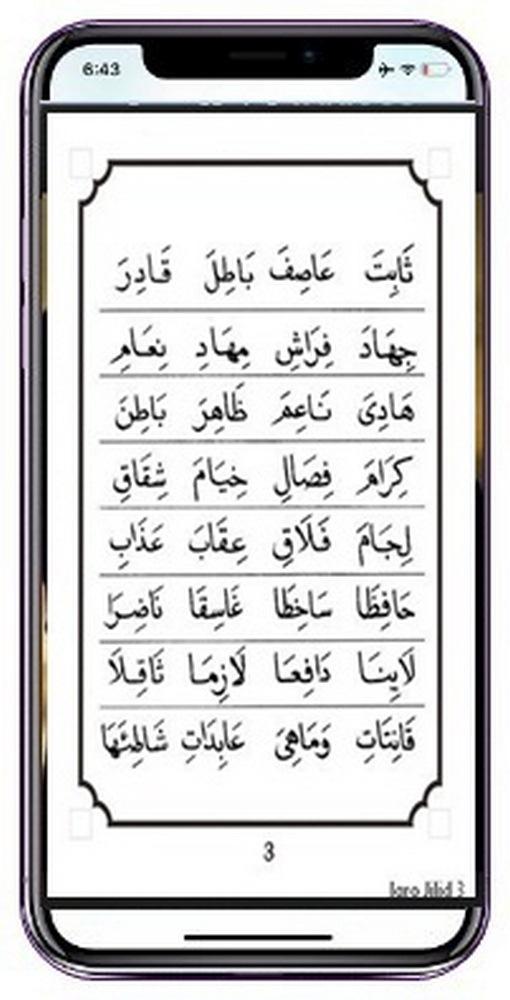 6:43
ثَابِتَ عَاصِفَ بَاطِلَ قَادِرَ
جِهَادَ فِرَاشِ مِهَادِ نِعَامِ
هَادِىَ نَاعِمَ ظَاهِرَ بَاطِنَ
كِرَامَ فِصَالِ خِيَامَ شِقَاقِ
لِجَامَ فَلَاقِ عِقَابَ عَذَابِ
حَافِظَا سَاخِطَا غَاسِقَا نَاضِرَا
لَابِنَا دَافِعَا لَازِمَا ثَاقِلَا
قَانِتَاتِ وَمَاهِىَ عَابِدَاتِ
3
Iqro Jilid 3